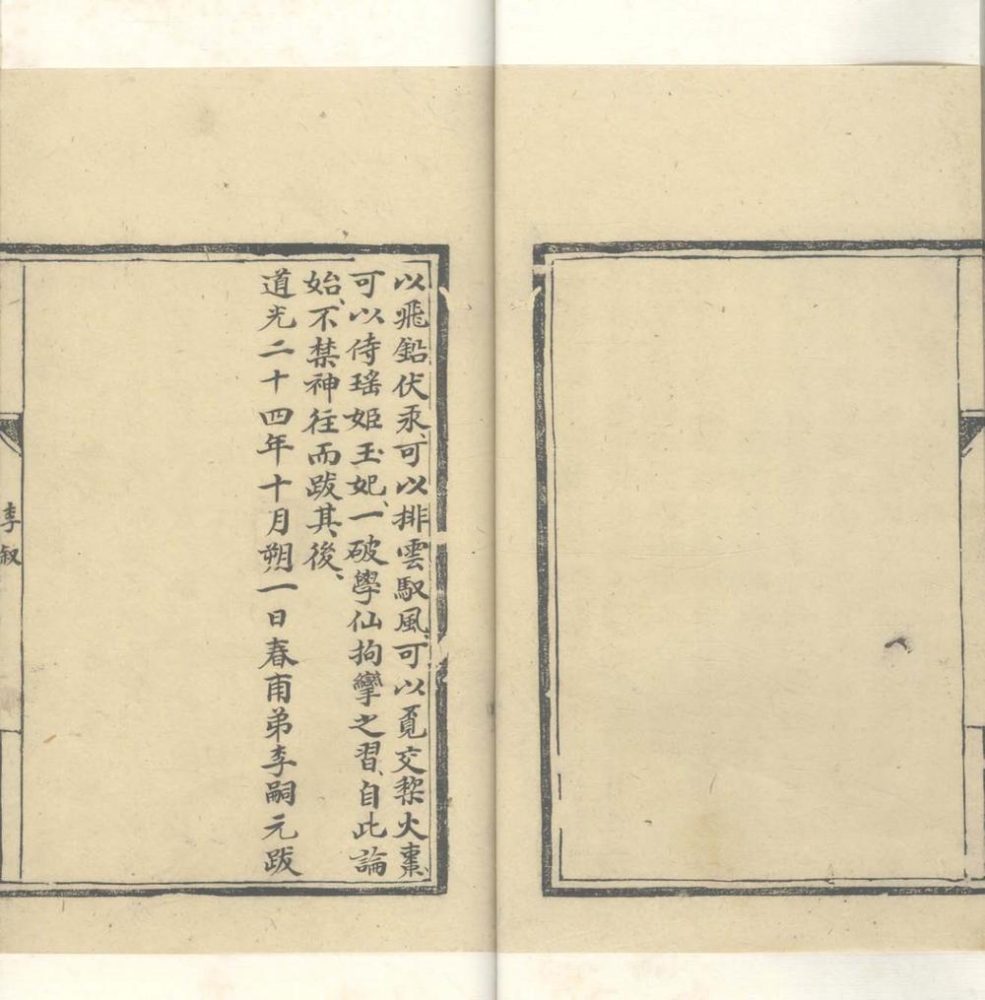 以飛鉛伏汞、可以排雲馭風、可以覓交棃火棗、
可以侍瑤姬玉妃、一破學仙拘攣之習、自此論
始、不禁神往而跋其後、
道光二十四年十月朔一日春甫弟李嗣元跋
李叙